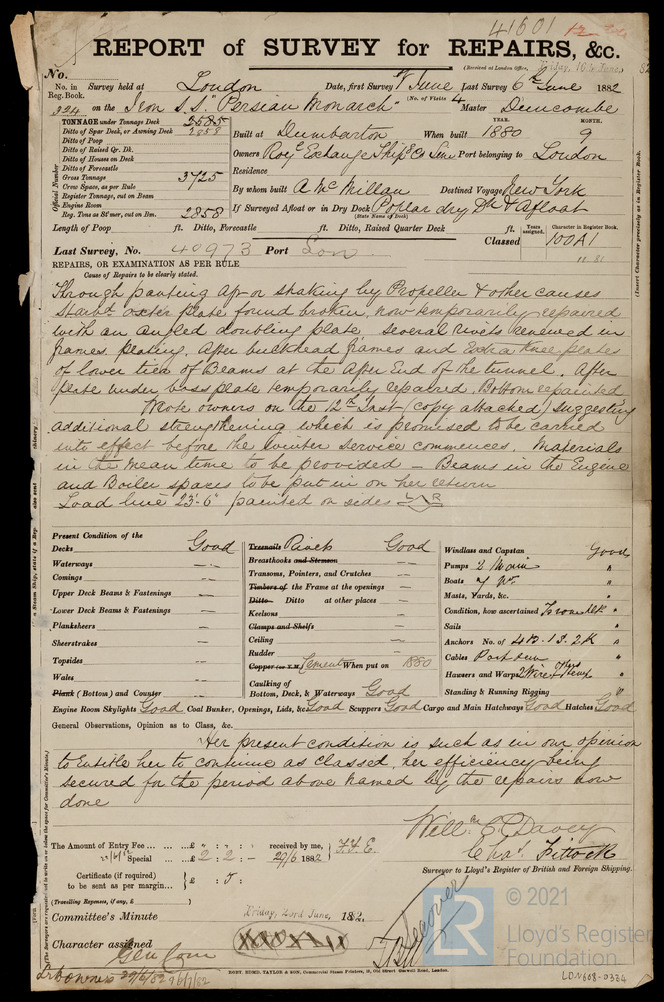 41601
REPORT of SURVEY for REPAIRS, &c.
(Received at London Office, Friday, 16th June, 82
No.
No. in Reg. Book. Survey held at London Date, first Survey 1st June Last Survey 6th June 1882
(No. of Visits 4
324 on the Iron S.S. "Persian Monarch" Master Duncombe
TONNAGE under Tonnage Deck 2585
Ditto of Spar Deck, or Awning Deck 2858
Ditto of Poop
Ditto of Raised Qr. Dk.
Ditto of Houses on Deck
Ditto of Forecastle
Gross Tonnage 3725
Crew Space, as per Rule
Register Tonnage, cut on Beam
Engine Room
Reg. Tons as St'mer, cut on Bm. 2858
Official Number
Built at Dumbarton When built YEAR. 1880 MONTH. 9
Owners Royl Exchange Ship Co Port belonging to London
Residence
By whom built A. McMillan Destined Voyage New York
If Surveyed Afloat or in Dry Dock Poplar dry Dk & Afloat
(State Name of Dock)
Length of Poop ft. Ditto, Forecastle ft. Ditto, Raised Quarter Deck ft.
Years assigned. Character in Register Book.
Classed 100A1
11.81
Last Survey, No. 40973 Port Lon
REPAIRS, OR EXAMINATION AS PER RULE
Cause of Repairs to be clearly stated.
Through panting aft or shaking by Propeller & other causes
Starbd oxter plate found broken, now temporarily repaired
with an angled doubling plate, several rivets renewed in
frames, plating, after buckhead frames and Extra knee plates
of lower tier of Beams at the After End of the tunnel. After
plate under boss plate temporarily repaired. Bottom repainted
Wrote owners on the 12th Inst (copy attached) suggesting
additional strengthening which is promised to be carried
into effect before the winter service commences. Materials
in the mean time to be provided – Beams in the Engine
and Boiler spaces to be put in on her return
Load line 23'-6" painted on sides L R
Present Condition of the
Decks Good
Waterways
Comings
Upper Deck Beams & Fastenings
Lower Deck Beams & Fastenings
Planksheers
Sheerstrakes
Topsides
Wales
Plank (Bottom) and Counter
Treenails Rivets Good
Breasthooks and Stemson
Transoms, Pointers, and Crutches
Timbers of the Frame at the openings
Ditto Ditto at other places
Keelsons
Clamps and Shelfs
Ceiling
Rudder
Copper (or Y.M.) Cement When put on 1880
Caulking of
Bottom, Deck, & Waterways Good
Windlass and Capstan Good
Pumps 2 Main "
Boats 7 "
Masts, Yards, &c. "
Condition, how ascertained From dk "
Sails "
Anchors No. of 4B. 1S. 2K "
Cables Part seen "
Hausers and Warps 2 Wire Hemp "
Standing & Running Rigging "
Engine Room Skylights Good Coal Bunker, Openings, Lids, &c. Good Scuppers Good Cargo and Main Hatchways Good Hatches Good
General Observations, Opinion as to Class, &c.
Her present condition is such as in our opinion
to Entitle her to continue as classed, her efficiency being
secured for the period above named by the repairs now
done
Willm E. C. Davey
Chas. Fittock
Surveyor to Lloyd's Register of British and Foreign Shipping.
The Amount of Entry Fee ... £ : : received by me,
Special ... £ 2 : 2 : – 29/6 1882
Certificate (if required) to be sent as per margin... £ : 5 :
(Travelling Repenses, if any, £ )
Committee's Minute Friday, 23rd June, 1882.
Character assigned
RISBY, EDMD. TAYLOR & SON, Commercial Steam Printers, 18, Old Street Goswell Road, London.
© 2021
LR
Lloyd's Register
Foundation
LON608-0334
(Insert Character precisely as in Register Book.